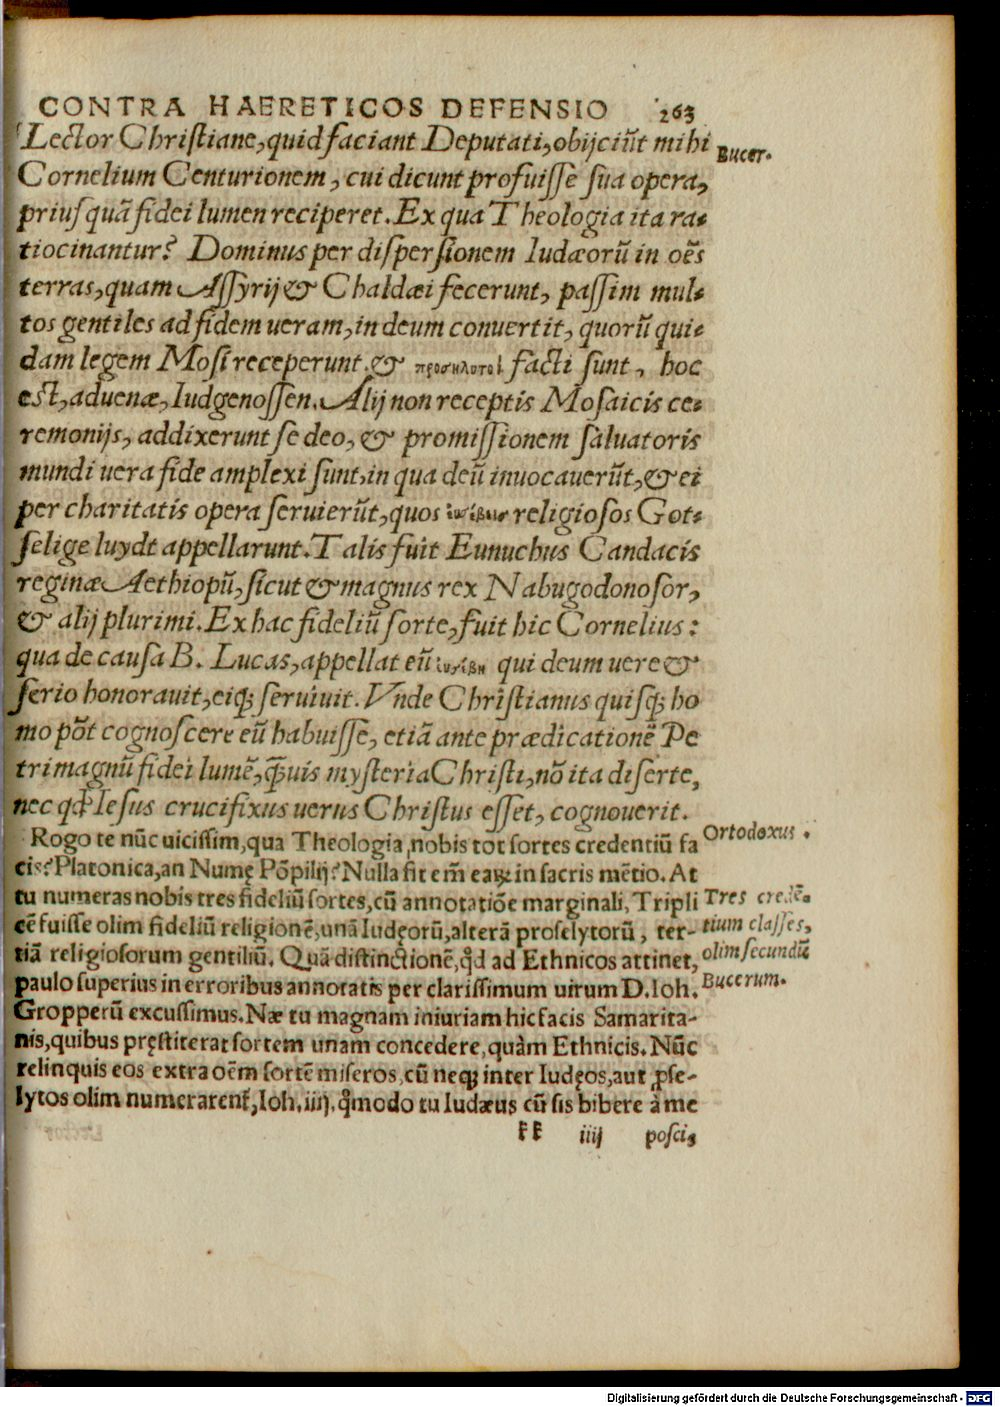 CONTRA HAERETICOS DEFENSIO 263
Lector Christiane, quid faciant Deputati, obijciūt mihi
Bucer.
Cornelium Centurionem, cui dicunt profuisse sua opera,
priusquā fidei lumen reciperet. Ex qua Theologia ita ra-
tiocinantur? Dominus per dispersionem Iudæorū in oēs
terras, quam Assyrij & Chaldæi fecerunt, passim mul-
tos gentiles ad fidem ueram, in deum conuertit, quorū qui-
dam legem Mosi receperunt. & προσήλυτοι facti sunt, hoc
est, aduenæ, Iudgenossen. Alij non receptis Mosaicis ce-
remonijs, addixerunt se deo, & promissionem saluatoris
mundi uera fide amplexi sunt, in qua deū inuocauerūt, & ei
per charitatis opera seruierūt, quos religiosos Got-
selige luydt appellarunt. Talis fuit Eunuchus Candacis
reginæ Aethiopū, sicut & magnus rex Nabugodonosor,
& alij plurimi. Ex hac fideliū sorte, fuit hic Cornelius:
qua de causa B. Lucas, appellat eū qui deum uere &
serio honorauit, eiq; seruiuit. Vnde Christianus quisq; ho
mo pōt cognoscere eū habuisse, etiā ante prædicationē Pe
tri magnū fidei lumē, q̄uis mysteria Christi, nō ita diserte,
nec qđ Iesus crucifixus uerus Christus esset, cognouerit.
Rogo te nūc uicissim, qua Theologia nobis tot sortes credentiū fa
Ortodoxus.
cis? Platonica, an Numę Pōpilij? Nulla fit em̄ eaꝝ in sacris mētio. At
tu numeras nobis tres fideliū sortes, cū annotatiōe marginali, Tripli
Tres credē-
cē fuisse olim fideliū religionē, unā Iudęorū, alterā proselytorū, ter-
tium classes,
tiā religiosorum gentiliū. Quā distinctionē, qđ ad Ethnicos attinet,
olim secundū
paulo superius in erroribus annotatis per clarissimum uirum D. Ioh.
Bucerum.
Gropperū excussimus. Næ tu magnam iniuriam hic facis Samarita-
nis, quibus pręstiterat sortem unam concedere, quàm Ethnicis. Nūc
relinquis eos extra oēm sortē miseros, cū neq; inter Iudęos, aut ꝓse-
lytos olim numerarent̄, Ioh. iiij. q̄modo tu Iudæus cū sis bibere à me
kk iiij poscis